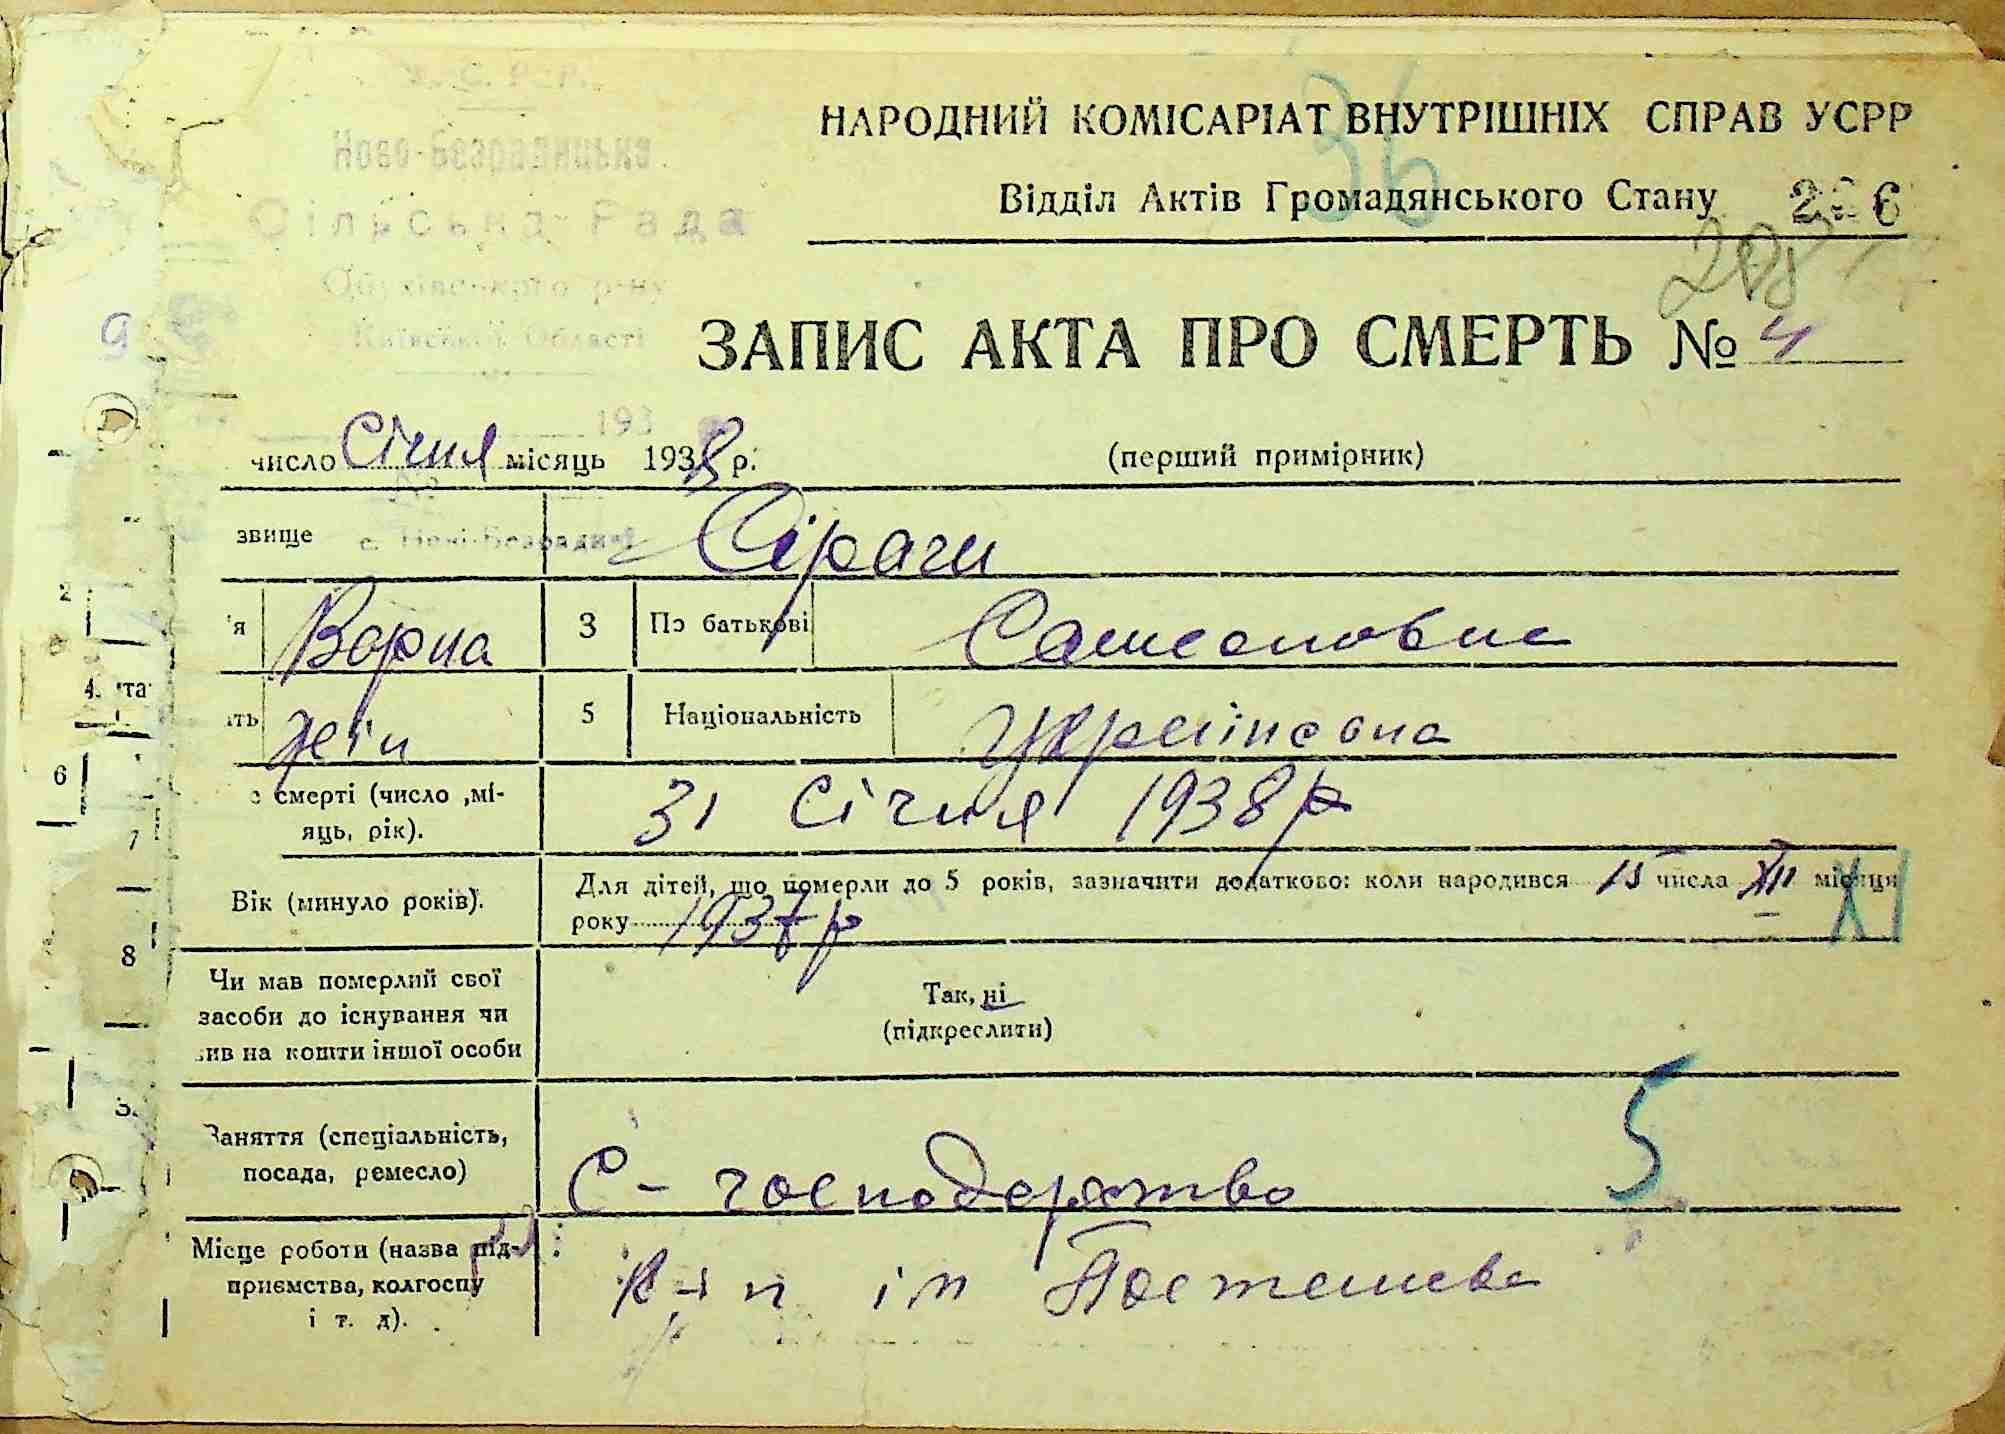 У. С. Р. Р.
Ново-Безрадицька
Сільська Рада
Обухівського р-ну
Київської Області
193
НАРОДНИЙ КОМІСАРІАТ ВНУТРІШНІХ СПРАВ УСРР
36
Відділ Актів Громадянського Стану
9
ЗАПИС АКТА ПРО СМЕРТЬ № 4
число Січня місяць 1938 р.
(перший примірник)
звище
Сірачи
'я
Варка
3
По батькові
Самсоновна
2
4.
ать
жін
5
Національність
Українсона
6
7
с смерті (число, мі-
яць, рік).
31 Січня 1938 р
Вік (минуло років).
Для дітей, що померли до 5 років, зазначити додатково: коли народився 15 числа XII місяця
XI
року 1937 р
8
Чи мав померлий свої
засоби до існування чи
ив на кошти іншої особи
Так, ні
(підкреслити)
Заняття (спеціальність,
посада, ремесло)
С-господарство
5
Місце роботи (назва під-
приємства, колгоспу
і т. д).
к-п ім Постишева